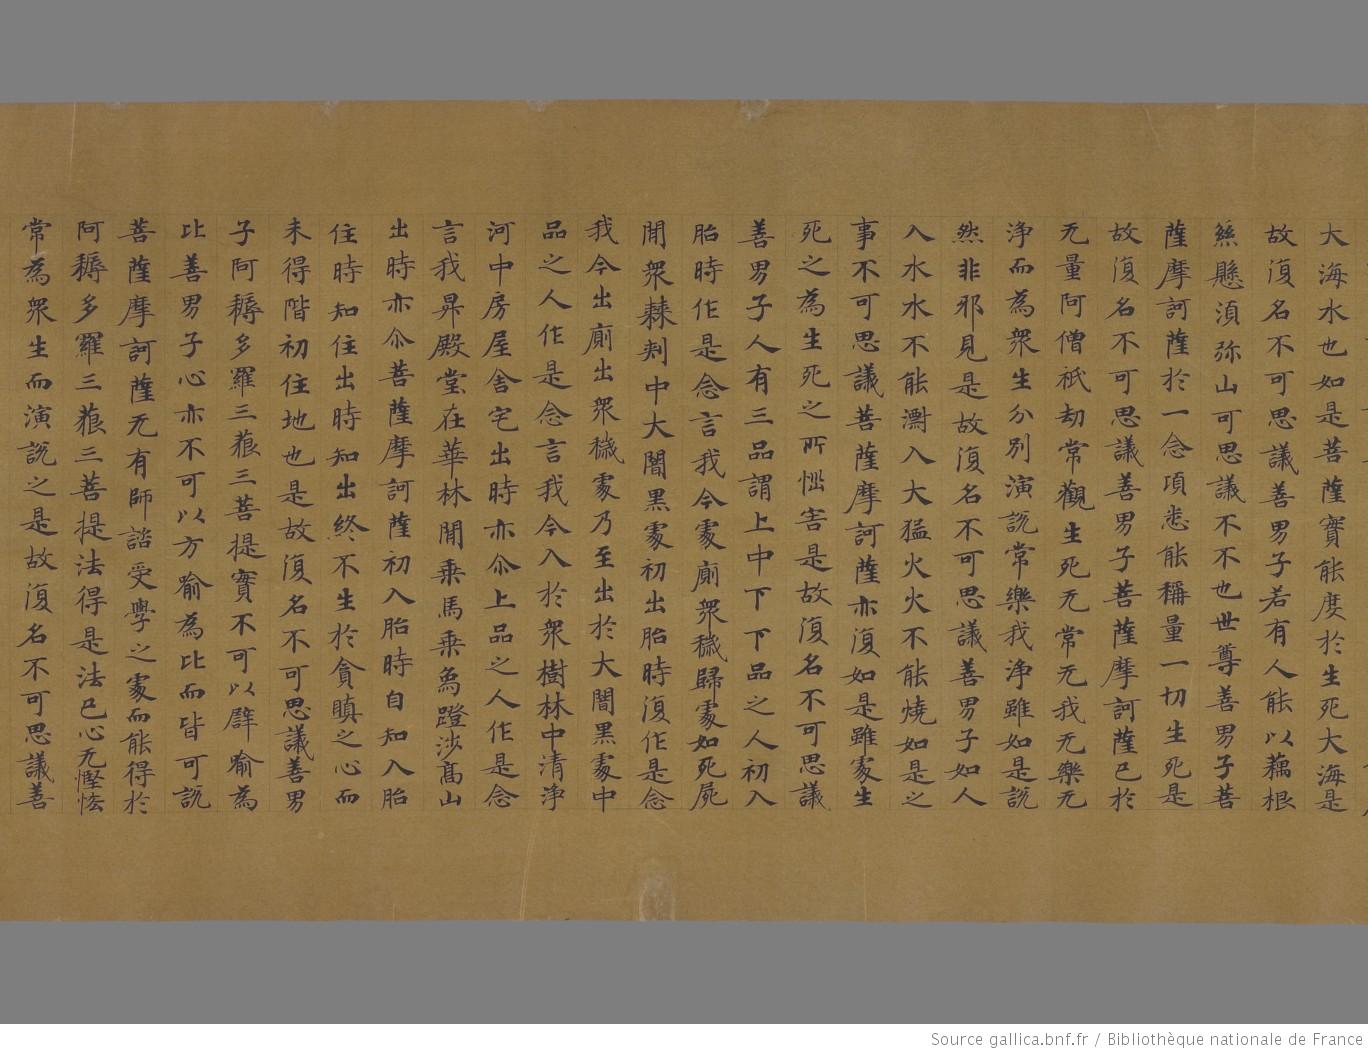 大海水也如是菩薩實能度於生死大海是
故復名不可思議善男子若有人能以藕根
絲懸湏弥山可思議不不也世尊善男子菩
薩摩訶薩於一念項悉能稱量一切生死是
故復名不可思議善男子菩薩摩訶薩已於
无量阿僧祇劫常觀生死无常无我无樂无
淨而為衆生分別演說常樂我淨雖如是說
然非邪見是故復名不可思議善男子如人
入水水不能溺入大猛火火不能燒如是之
事不可思議菩薩摩訶薩亦復如是雖處生
死之為生死之所惱害是故復名不可思議
善男子人有三品謂上中下下品之人初入
胎時作是念言我今處廁衆穢歸處如死屍
閒衆棘刾中大闇黑處初出胎時復作是念
我今出廁出衆穢處乃至出於大闇黑處中
品之人作是念言我今入於衆樹林中清淨
河中房屋舍宅出時亦尒上品之人作是念
言我昇殿堂在華林閒乗馬乗為蹬涉髙山
出時亦尒菩薩摩訶薩初入胎時自知入胎
住時知住出時知出終不生於貪瞋之心而
未得階初住地也是故復名不可思議善男
子阿耨多羅三藐三菩提實不可以譬喻為
比善男子心亦不可以方喻為比而皆可說
菩薩摩訶薩无有師諮受學之處而能得於
阿耨多羅三藐三菩提法得是法已心无慳悋
常為衆生而演說之是故復名不可思議善
Source gallica.bnf.fr / Bibliothèque nationale de France